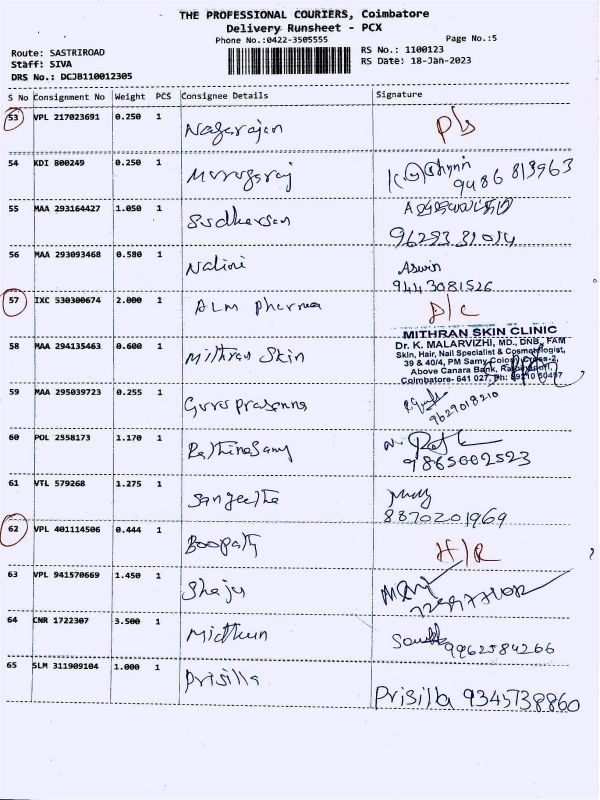 THE PROFESSIONAL COURIERS, Coimbatore
Delivery Runsheet - PCX
Phone No.:0422-3505555 Page No.:5
Route: SASTRIROAD RS No.: 1100123
Staff: SIVA RS Date: 18-Jan-2023
DRS No.: DCJB110012305
S No Consignment No Weight PCS Consignee Details Signature
53 VPL 217023691 0.250 1 Nagarajan
54 KDI 800249 0.250 1 Murugaraj 9486 813963
55 MAA 293164427 1.050 1 Sudharsan
96293 31014
56 MAA 293093468 0.580 1 Nalini Aswin
9443081526
57 IXC 530300674 2.000 1 ALM pharma D/C
MITHRAN SKIN CLINIC
Dr. K. MALARVIZHI, MD., DNB., FAM
Skin, Hair, Nail Specialist & Cosmetologist,
58 MAA 294135463 0.600 1 Mithran Skin 39 & 40/4, PM Samy Colony
Above Canara Bank,
Coimbatore- 641 027, Ph:
59 MAA 295039723 0.255 1 Guruprasanna
9629018210
60 POL 2558173 1.170 1 Rathinasamy
9865002523
61 VTL 579268 1.275 1 Sangeetha
8870201969
62 VPL 401114506 0.444 1 Boopaty H/R
63 VPL 941570669 1.450 1 Shaju
64 CNR 1722307 3.500 1 Midhun 9962584266
65 SLM 311909104 1.000 1 Prisilla
Prisilla 9345738860